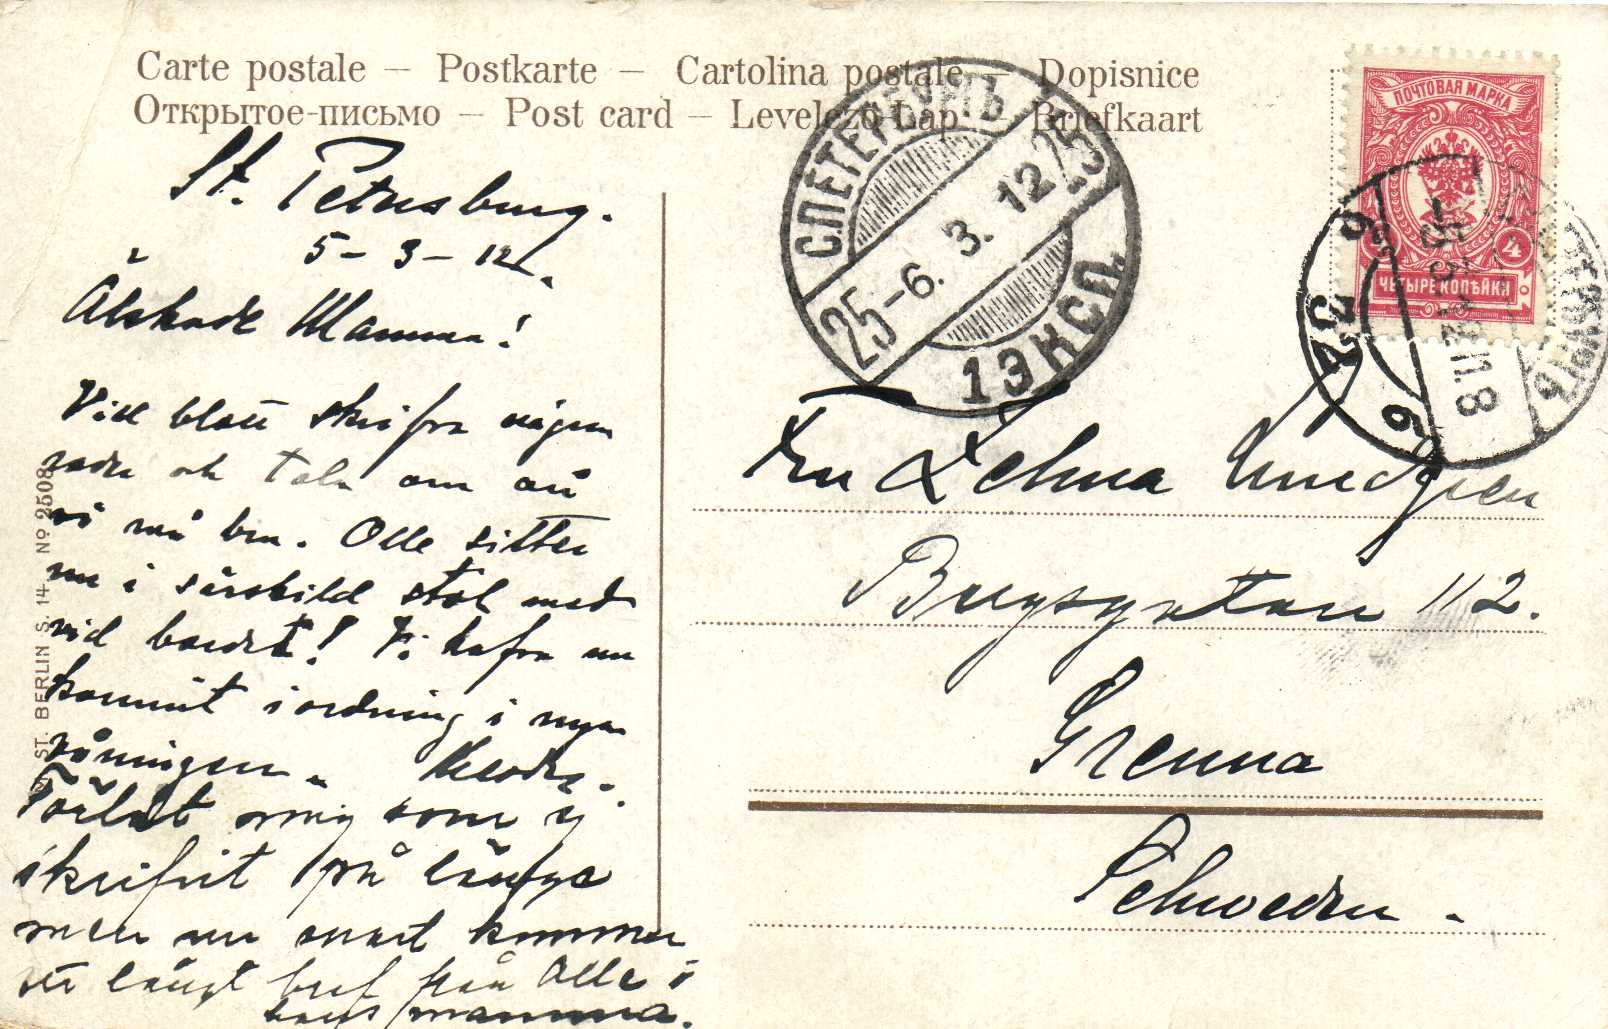 Carte postale – Postkarte – Cartolina postale – Dopisnice
Открытое-письмо – Post card – Levelező-Lap – Briefkaart
С.ПЕТЕРБУРГЪ
25-6.3.12 25
1 ЭКСП.
ПОЧТОВАЯ МАРКА
4
ЧЕТЫРЕ КОПѢЙКИ
St. Petersburg.
5-3-12.
Älskade Mamma!
Vill blott skrifva någon
rader och tala om att
vi må bra. Olle sitter
nu i särskild stol med
vid bordet! Vi hafva nu
kommit i ordning i nya
våningen.
Förlåt mig som ej
skrifvit på länge
men nu snart kommer
ett långt bref från Olle o
hans mamma.
Fru Selma Lundgren
Bergsgatan 112.
Grenna
Schweden.
ST. BERLIN S. 14. No 2508